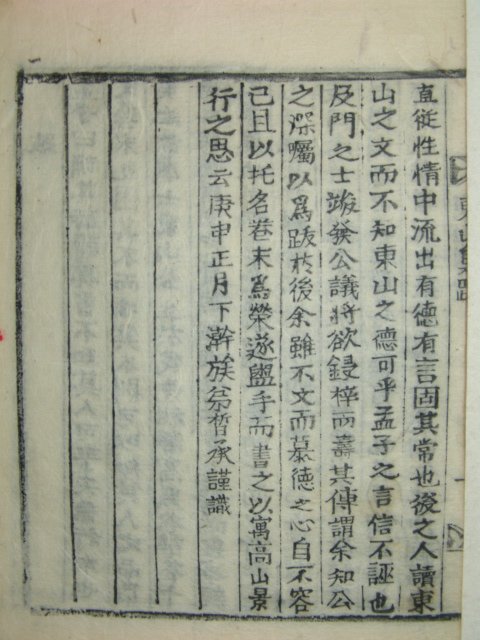 直從性情中流出有德有言固其常也後之人讀東
山之文而不知東山之德可乎孟子之言信不誣也
及門之士踆發公議將欲鋟梓而壽其傳謂余知公
之深囑以爲跋於後余雖不文而慕德之心自不容
已且以托名卷末爲榮遂盥手而書之以寓高山景
行之思云庚申正月下澣族弟晳承謹識